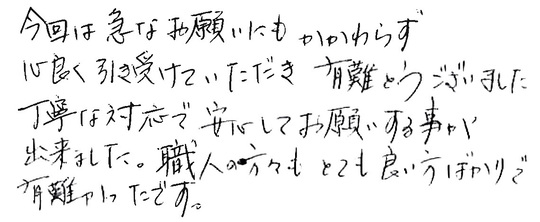 今回は急なお願いにもかかわらず
心良く引き受けていただき 有難とうございました
丁寧な対応で安心してお願いする事が
出来ました。職人の方々もとても良い方ばかりで
有難かったです。